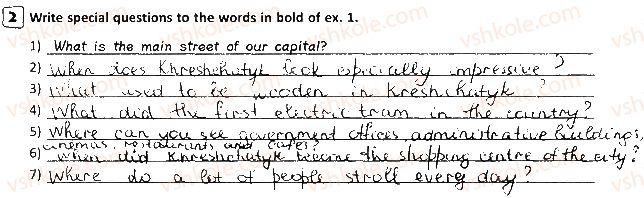 2 Write special questions to the words in bold of ex. 1.
1) What is the main street of our capital?
2) When does Khreshchatyk look espicially impressive?
3) What used to be wooden in Kreshchatyk ?
4) What did the first electric tram in the country?
5) Where can you see government offices, administrative buildings,
cinemas, restaurants and cafes?
6) When did Khreshchatyk become the shopping centre of the city?
7) Where do a lot of people stroll every day?